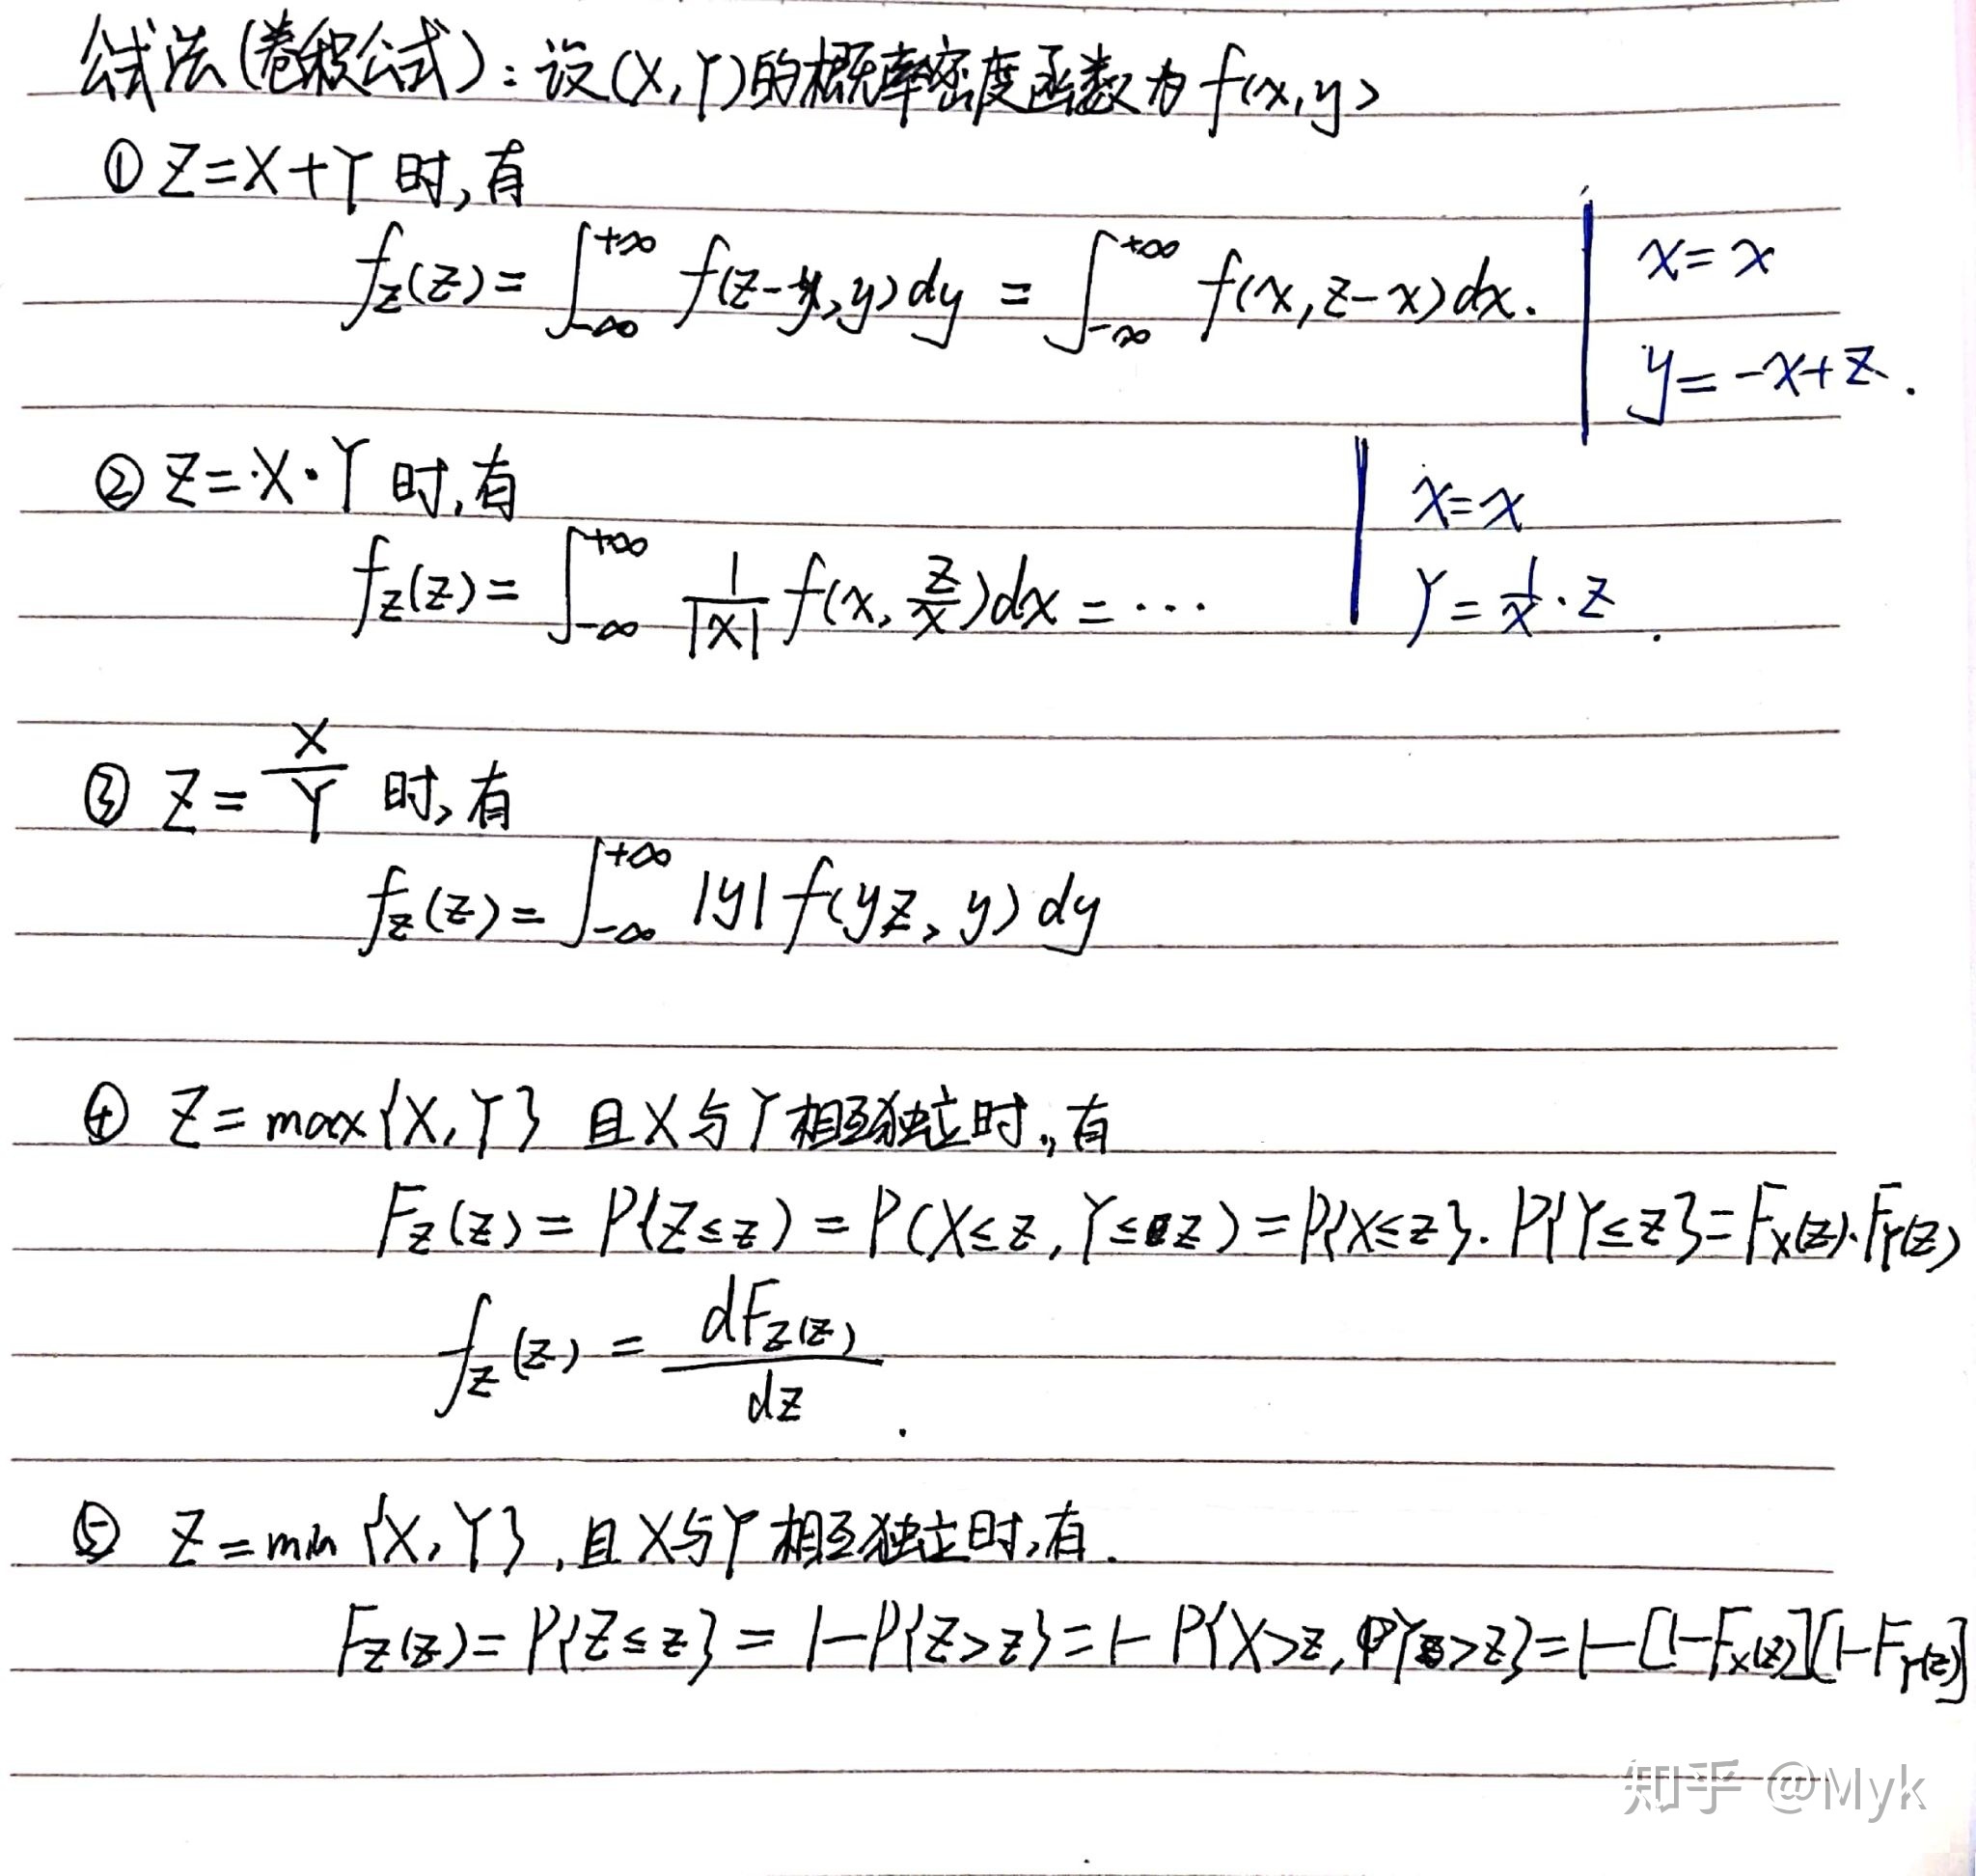 公式法(卷积公式):设(X,Y)的概率密度函数为f(x,y)
① Z=X+Y 时,有
f_Z(z)=∫_{-∞}^{+∞} f(z-y,y)dy = ∫_{-∞}^{+∞} f(x,z-x)dx.
x=x
y=-x+z.
② Z=X·Y 时,有
f_Z(z)=∫_{-∞}^{+∞} \frac{1}{|x|} f(x,\frac{z}{x})dx=···
x=x
Y=\frac{1}{x}·z.
③ Z=\frac{X}{Y} 时,有
f_Z(z)=∫_{-∞}^{+∞} |y| f(yz,y)dy
④ Z=max{X,Y} 且X与Y相互独立时,有
F_Z(z)=P{Z≤z)=P(X≤z,Y≤z)=P{X≤z}.P{Y≤z}=F_X(z).F_Y(z)
f_Z(z)=\frac{dF_Z(z)}{dz}.
⑤ Z=min{X,Y},且X与Y相互独立时,有.
F_Z(z)=P{Z≤z}=1-P{Z>z}=1-P{X>z,Y>z}=1-[1-F_X(z)][1-F_Y(z)]
知乎 @Myk